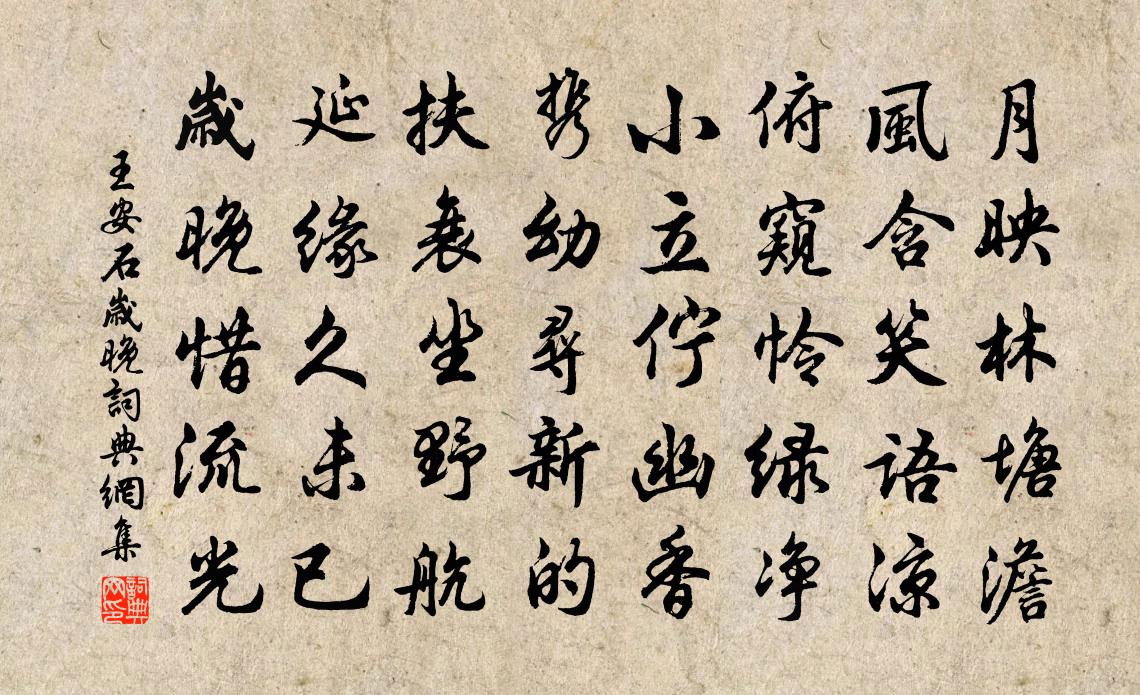 月映林塘澹
風含笑語涼
俯窺怜緑浄
小立佇幽香
携幼尋新的
扶衰坐野航
延緣久未已
歲晚惜流光
王安石歲晚詞典網集
詞典網印